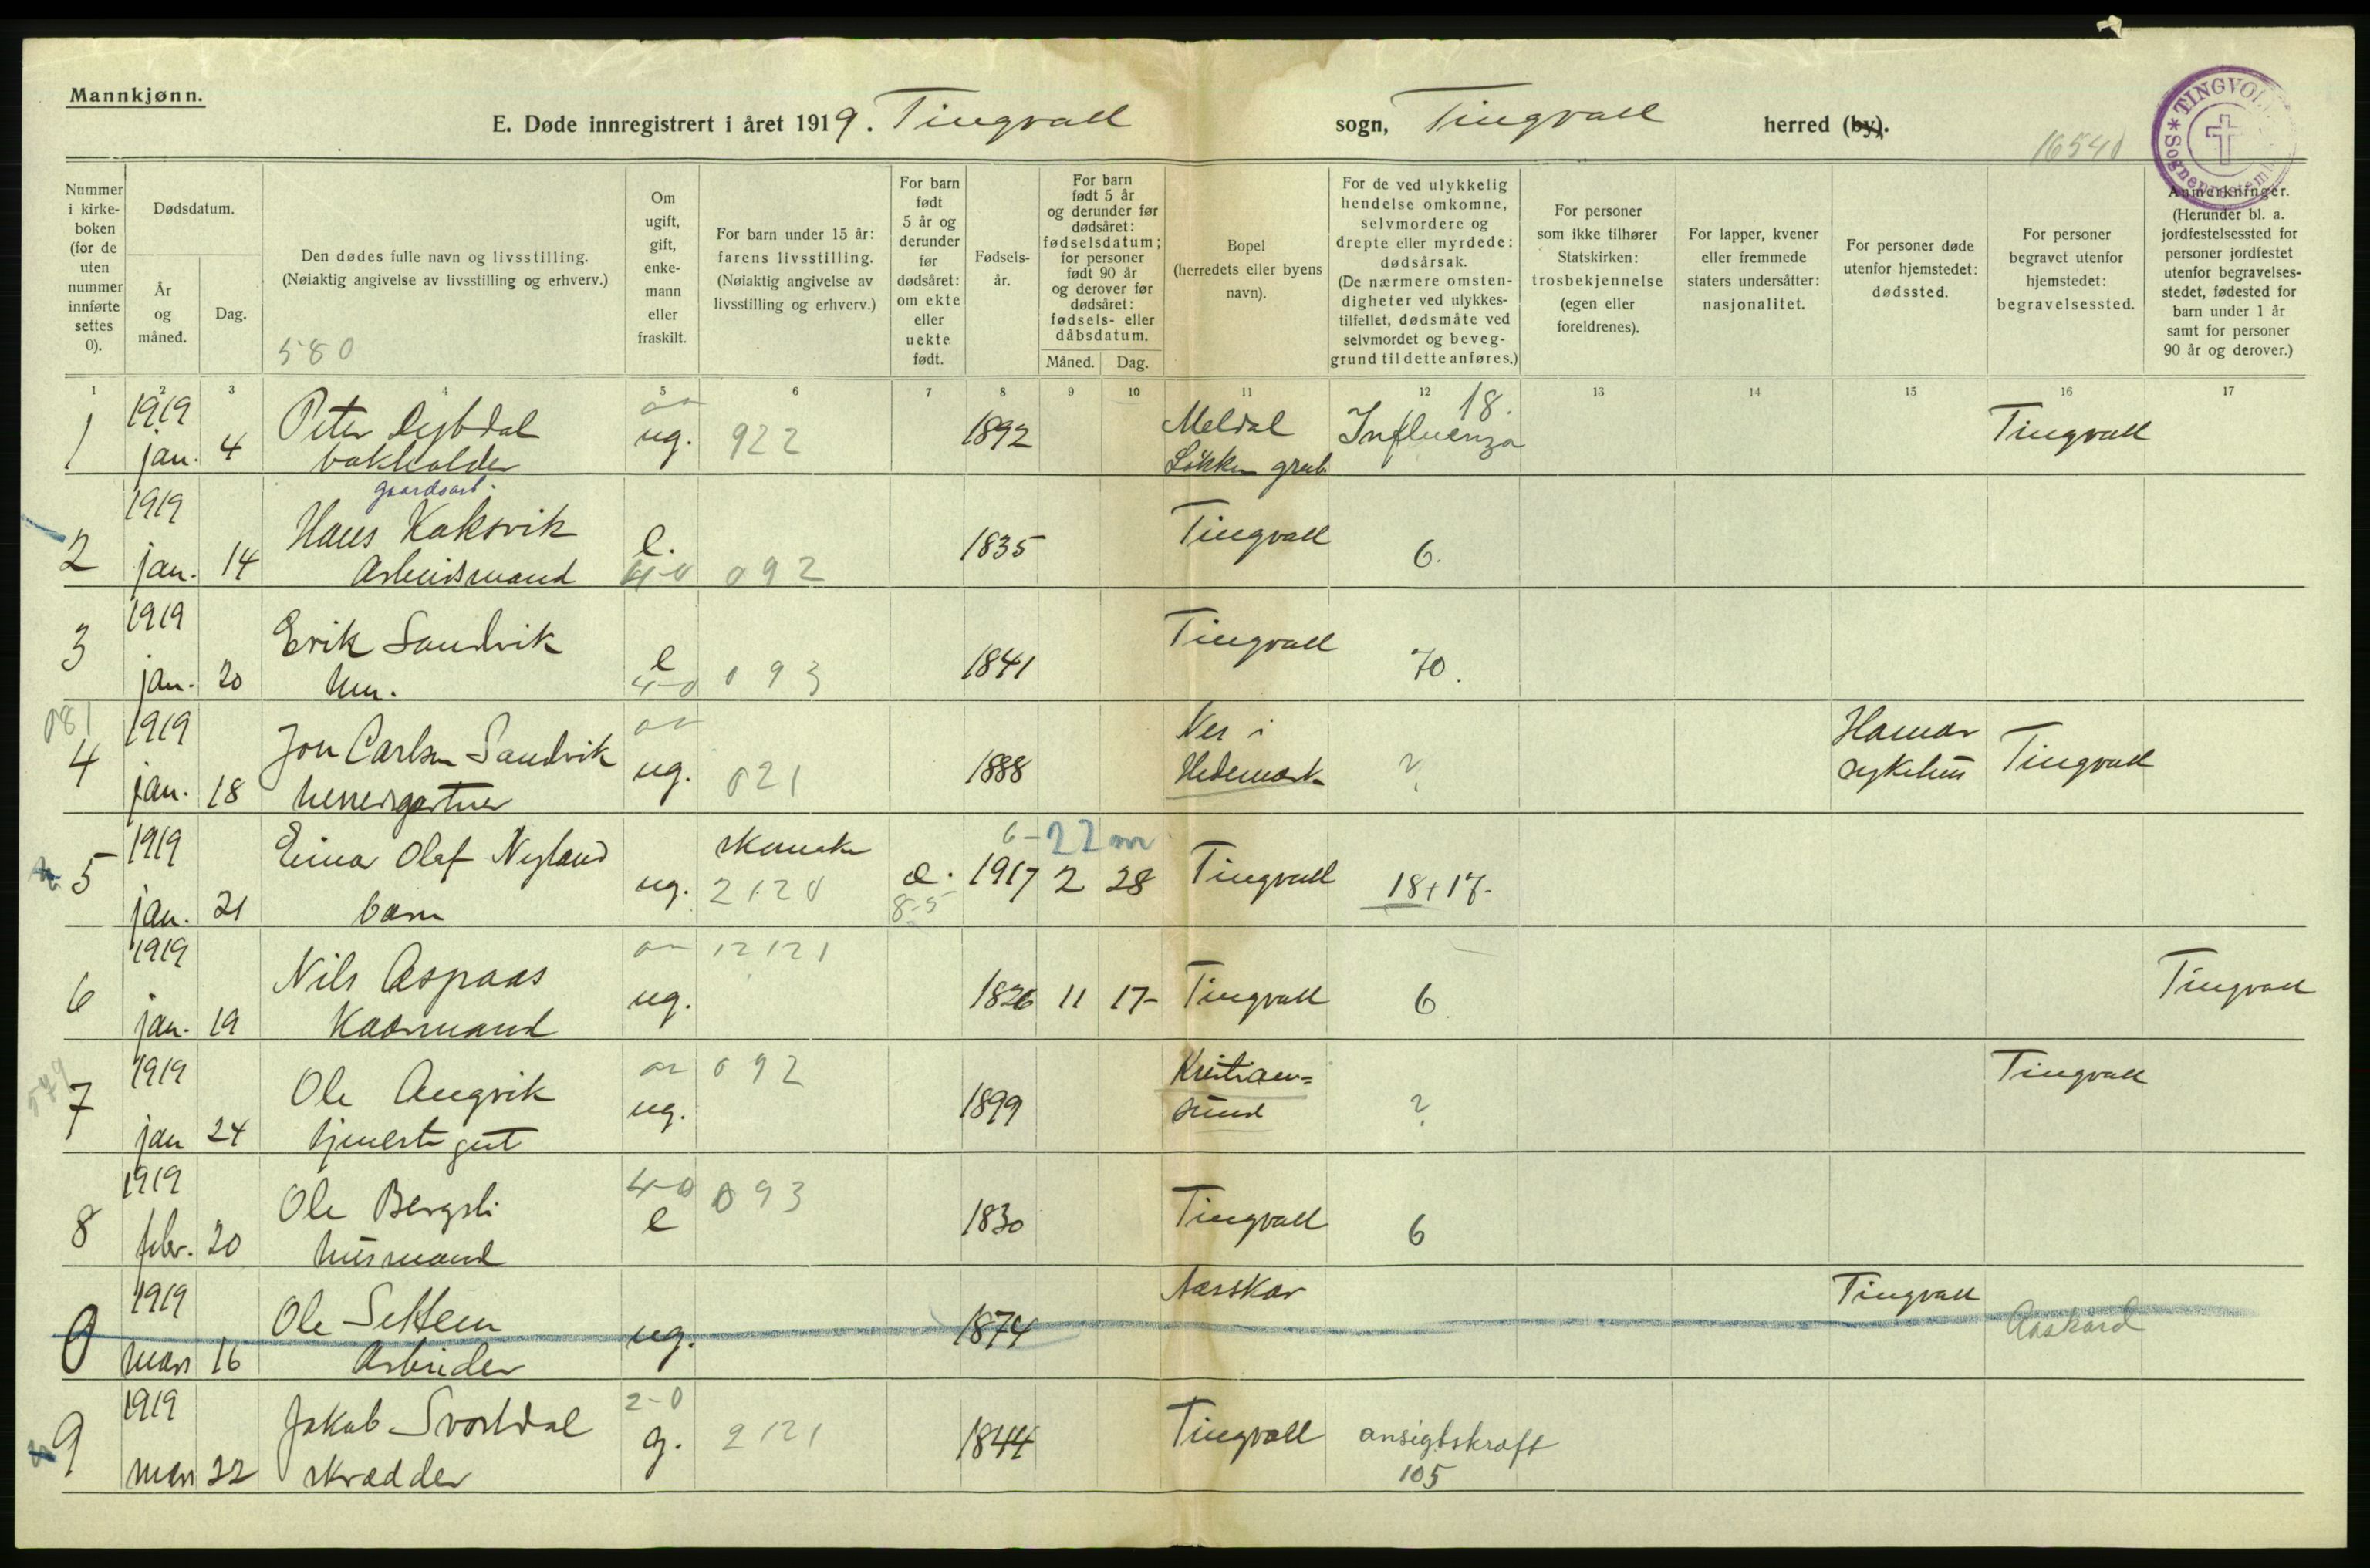 Mannkjønn.
E. Døde innregistrert i året 1919. Tingvoll sogn, Tingvoll herred (by).
16540
TINGVOLL
Nummer i kirke-boken (for de uten nummer innførte settes 0).
Dødsdatum.
År og måned.
Dag.
Den dødes fulle navn og livsstilling.
(Nøiaktig angivelse av livsstilling og erhverv.)
580
Om ugift, gift, enke-mann eller fraskilt.
For barn under 15 år: farens livsstilling.
(Nøiaktig angivelse av livsstilling og erhverv.)
For barn født 5 år og derunder før dødsåret: om ekte eller uekte født.
Fødsels-år.
For barn født 5 år og derunder før dødsåret: fødselsdatum; for personer født 90 år og derover før dødsåret: fødsels- eller dåbsdatum.
Måned.
Dag.
Bopel
(herredets eller byens navn).
For de ved ulykkelig hendelse omkomne, selvmordere og drepte eller myrdede: dødsårsak.
(De nærmere omsten-digheter ved ulykkes-tilfellet, dødsmåte ved selvmordet og beveg-grund til dette anføres.)
For personer som ikke tilhører Statskirken: trosbekjennelse (egen eller foreldrenes).
For lapper, kvener eller fremmede staters undersåtter: nasjonalitet.
For personer døde utenfor hjemstedet: dødssted.
For personer begravet utenfor hjemstedet: begravelsessted.
Anmerkninger.
(Herunder bl. a. jordfestelsessted for personer jordfestet utenfor begravelses-stedet, fødested for barn under 1 år samt for personer 90 år og derover.)
1 2 3 4 5 6 7 8 9 10 11 12 13 14 15 16 17
1 1919 jan. 4 Peter Dybdal ug. 922 1892 Meldal Influenza 18. Tingvoll
bokholder Løkken grub
gaardsarb.
2 1919 jan. 14 Hans Koksvik e. 4-0 092 1835 Tingvoll 6.
Arbeidsmand
3 1919 jan. 20 Erik Sandvik e 4-0 093 1841 Tingvoll 70.
hm.
081
4 1919 jan. 18 Jon Carlsen Sandvik ug. 021 1888 Nes i Hedemark ? Hamar sykehus Tingvoll
herredsgartner
6- 22 m
5 1919 jan. 21 Einar Olaf Nyland ug. 2120 e. 8-5 1917 2 28 Tingvoll 18+17.
barn
6 1919 jan. 19 Nils Aspaas ug. 12121 1826 11 17- Tingvoll 6 Tingvoll
Kaarmand
579
7 1919 jan 24 Ole Angvik ug. 092 1899 Kristian=sund ? Tingvoll
tjenestegut
8 1919 febr. 20 Ole Bergsli 4-0 e 093 1830 Tingvoll 6
husmand
0 1919 mars 16 Ole Settem ug. 1874 Aasskar Tingvoll Aaskard
Arbeider
9 1919 mars 22 Jakob Svortdal 2-0 g. 2121 1844 Tingvoll ansigtskræft
skrædder 105